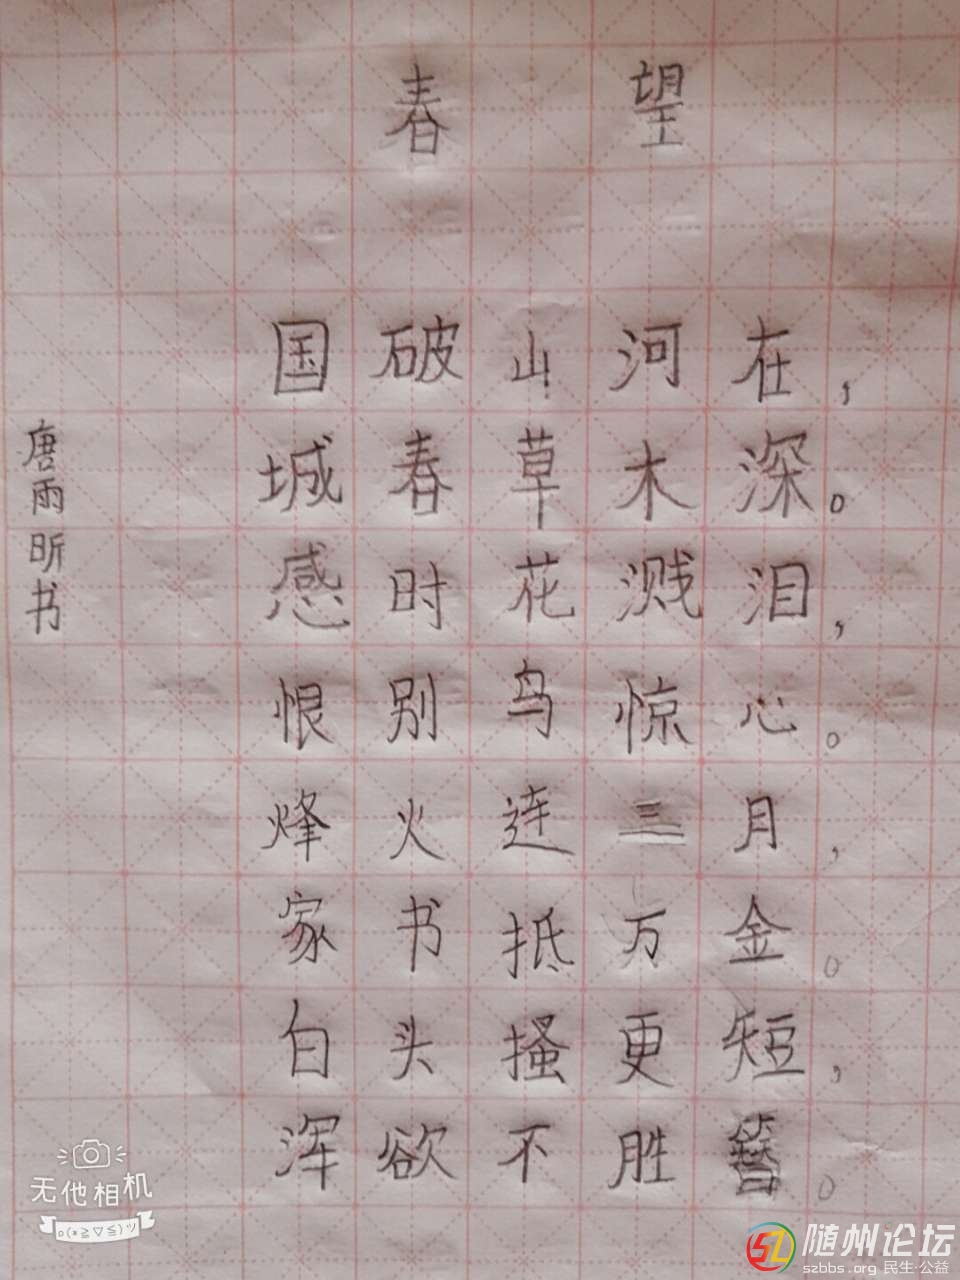 春望
国破山河在，
城春草木深。
感时花溅泪，
恨别鸟惊心。
烽火连三月，
家书抵万金。
白头搔更短，
浑欲不胜簪。
唐雨昕书
无他相机
o(*≧▽≦)ツ
随州论坛
szbbs.org 民生·公益